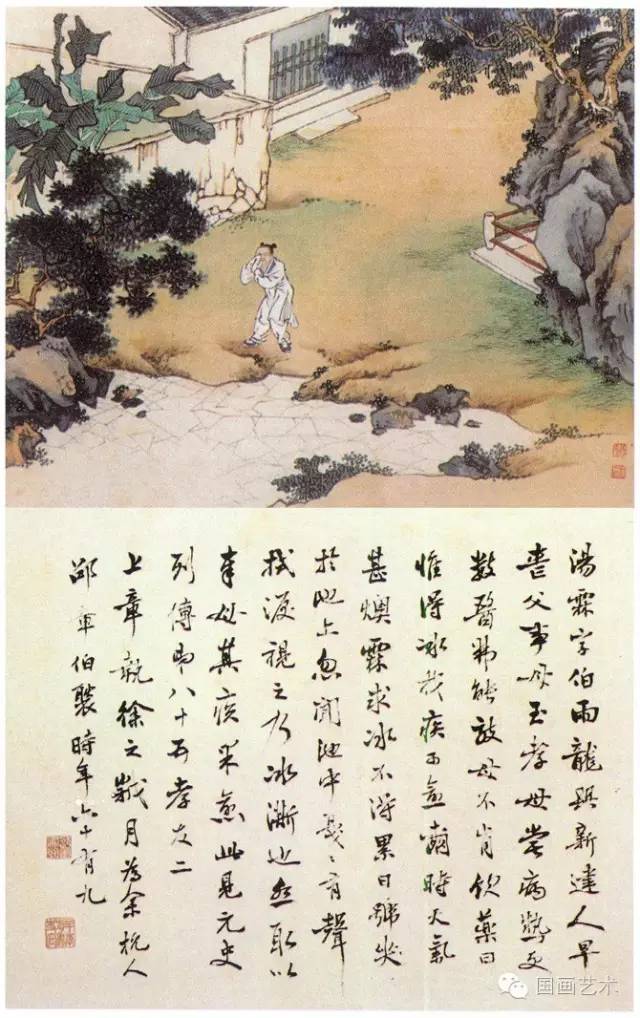 湯霖字伯雨龍興新建人早
喪父事母至孝母嘗病熱更
數醫弗能效母不肯飲藥曰
惟得冰我疾可愈爾時天氣
甚燠霖求冰不得累日號哭
於池上忽聞池中戛々有聲
拭淚視之乃冰澌也亟取以
奉母其疾果愈此見元史
列傳第八十五孝友二
上章執徐之歲月為余杭人
邵章伯褧時年六十有九
国画艺术